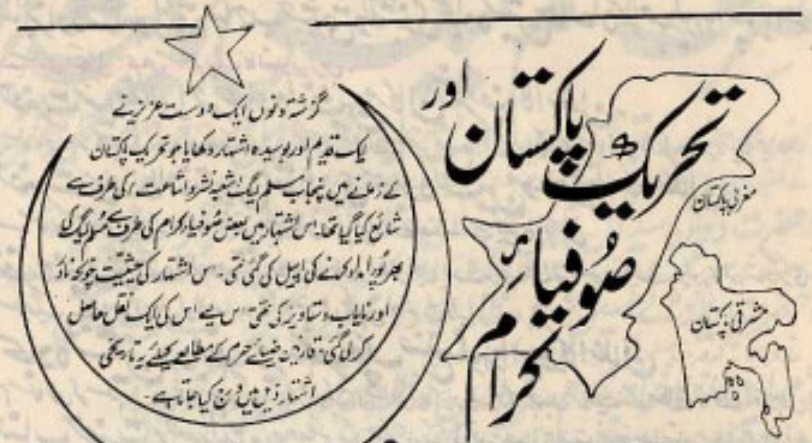 تحریک پاکستان اور
صوفیائے کرام
مغربی پاکستان
مشرقی پاکستان
گزشتہ دنوں ایک دوست عزیز نے
ایک قدیم اور بوسیدہ اشتہار دکھایا جو تحریک پاکستان
کے زمانے میں پنجاب مسلم لیگ (شعبہ نشر و اشاعت) کی طرف سے
شائع کیا گیا تھا۔ اس اشتہار میں بعض صوفیاء کرام کی طرف سے مسلم لیگ کی
بھرپور امداد کرنے کی اپیل کی گئی تھی۔ اس اشتہار کی حیثیت چونکہ نادر
اور نایاب دستاویز کی تھی اس لیے اس کی ایک نقل حاصل
کر لی گئی، قارئین ضیائے حرم کے مطالعے کیلئے یہ تاریخی
اشتہار ذیل میں درج کیا جاتا ہے۔